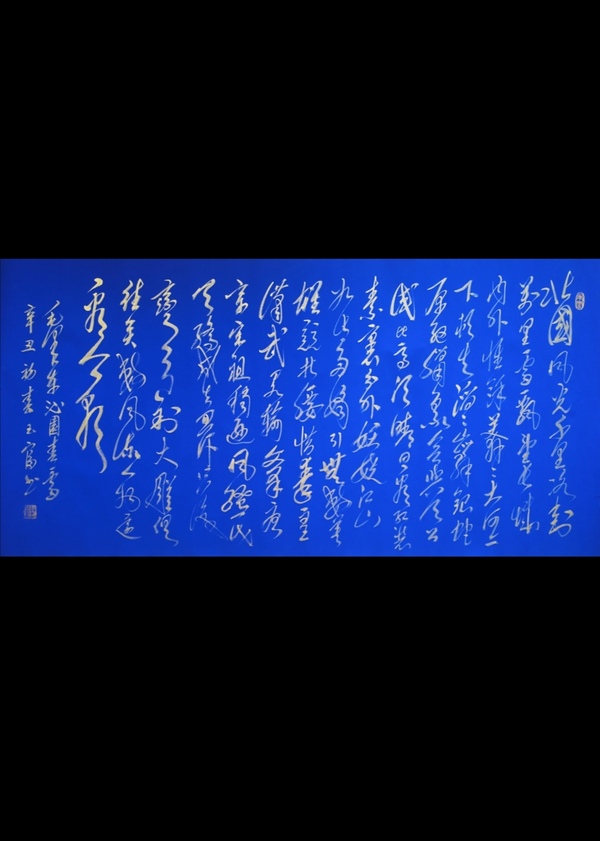 北國風光千里冰封
萬里雪飄望長城
内外惟餘莽々大河上
下頓失滔々山舞銀蛇
原馳蠟象欲與天公
試比高須晴日看紅裝
素裹分外妖嬈江山
如此多嬌引無數英
雄競折腰惜秦皇
漢武略輸文采唐
宗宋祖稍遜風騷一代
天驕成吉思汗只識
彎弓射大雕俱
往矣數風流人物還
看今朝
毛澤東沁園春雪
辛丑初春玉富书